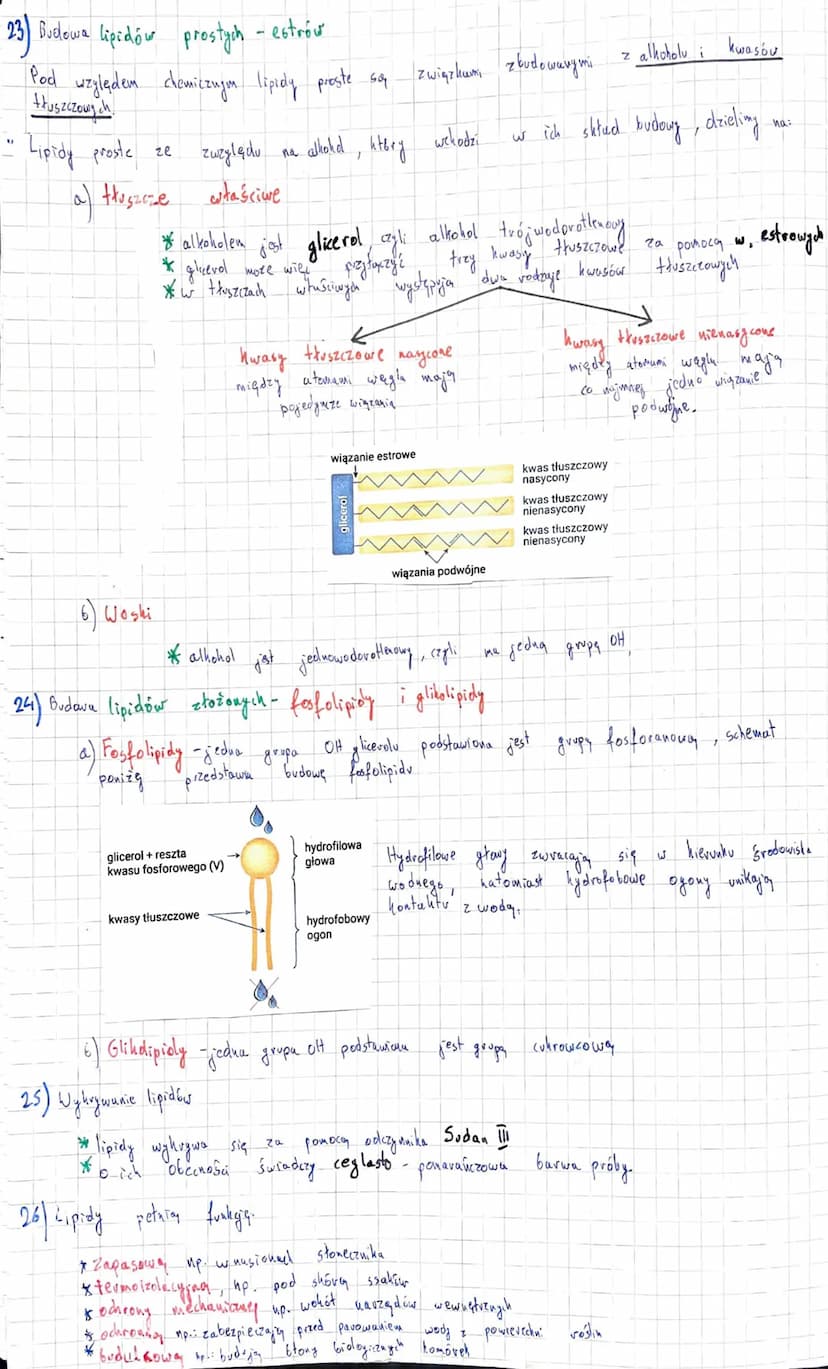 23) Budowa lipidów prostych - estrów
Pod względem chemicznym lipidy proste są związkami zbudowanymi z alkoholu i kwasów
tłuszczowych.
Lipidy proste ze zwzględu na alkohol, który wchodzi w ich skład budowy, dzielimy na:
a) tłuszcze właściwe
* alkoholem jest glicerol, czyli alkohol trójwodorotlenowy
* glicerol może więc przyłączyć trzy kwasy tłuszczowe za pomocą w. estrowych
* w tłuszczach właściwych występują dwa rodzaje kwasów tłuszczowych
kwasy tłuszczowe nasycone
między atomami węgla mają
pojedyncze wiązania
kwasy tłuszczowe nienasycone
między atomami węgla mają
co najmniej jedno wiązanie
podwójne.
wiązanie estrowe
glicerol
kwas tłuszczowy
nasycony
kwas tłuszczowy
nienasycony
kwas tłuszczowy
nienasycony
wiązania podwójne
b) Woski
* alkohol jest jednowodorotlenowy, czyli ma jedną grupę OH,
24) Budowa lipidów złożonych - fosfolipidy i glikolipidy
a) Fosfolipidy - jedna grupa OH glicerolu podstawiona jest grupą fosforanową, schemat
poniżę przedstawia budowę fosfolipidu
glicerol + reszta
kwasu fosforowego (V)
kwasy tłuszczowe
hydrofilowa
głowa
hydrofobowy
ogon
Hydrofilowe głowy zwracają się w kierunku środowiska
wodnego, natomiast hydrofobowe ogony unikają
kontaktu z wodą.
b) Glikolipidy - jedna grupa OH podstawiona jest grupą cukrowcową
25) Wykrywanie lipidów
* lipidy wykrywa się za pomocą odczynnika Sudan III
* o ich obecności świadczy ceglasto - pomarańczowa barwa próby.
26) Lipidy pełnią funkcję:
* zapasową np. w nasionach słonecznika
* termoizolacyjną, np. pod skórą ssaków
* ochrony mechanicznej np. wokół narządów wewnętrznych
* ochronną np.: zabezpieczają przed parowaniem wody z powierzchni roślin
* budulcową np.: budują błony biologicznych komórek